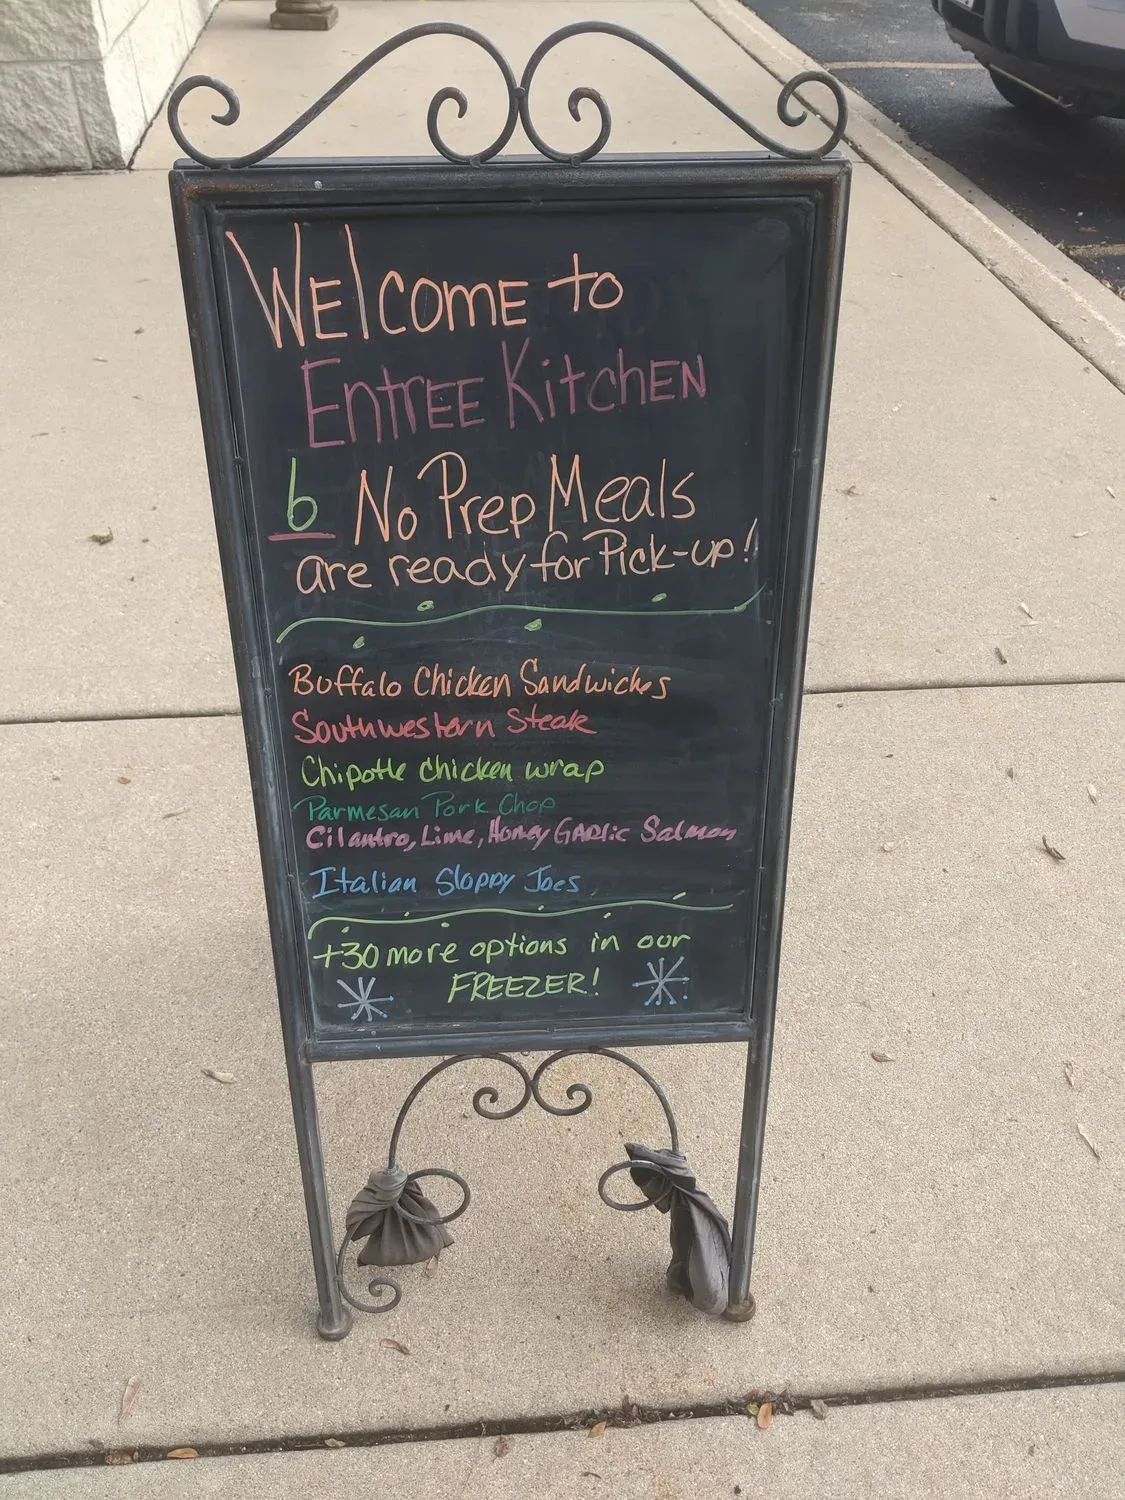 WElcomE to
EntrEE KitchEN
6 No Prep Meals
are ready for Pick-up!
Buffalo Chicken Sandwiches
Southwestern Steak
Chipotle chicken wrap
Parmesan Pork Chop
Cilantro, Lime, Honey GARlic Salmon
Italian Sloppy Joes
+30 more options in our
FREEZER!